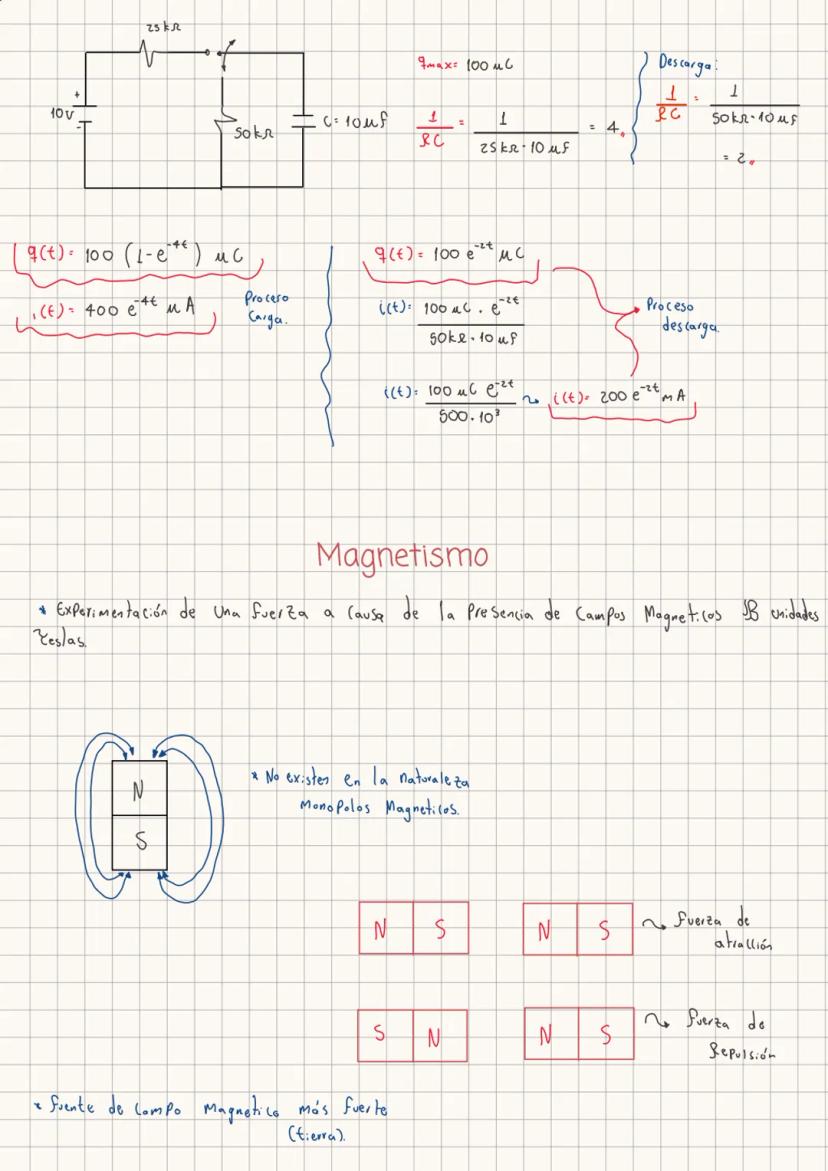 25 kΩ
+
10v
-
50kΩ
C= 10μf
qmax= 100 μC
1/RC = 1/(25 kΩ·10 μf) = 4.
Descarga:
1/RC = 1/(50kΩ·10 μf)
= 2.
q(t)= 100 (1-e^-4t) μC
i(t)= 400 e^-4t μA
Proceso
Carga.
q(t)= 100 e^-2t μC
i(t)= (100 μC · e^-2t)/(50kΩ·10 μf)
i(t)= (100 μC e^-2t)/(500·10³) ⤳ i(t)= 200 e^-2t mA
Proceso
descarga
Magnetismo
* Experimentación de una fuerza a causa de la presencia de Campos Magneticos B unidades
Teslas.
N
S
* No existen en la naturaleza
Monopolos Magneticos.
N S N S ⤳ fuerza de
atracción
S N N S ⤳ fuerza de
Repulsión
* fuente de campo magnetico más fuerte
(tierra).